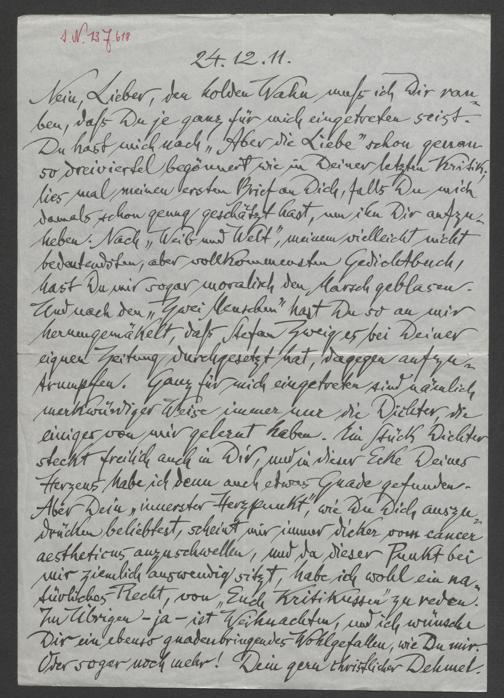 I.N. 137.618
24.12.11.
Nein, Lieber, den holden Wahn muß ich Dir rau-
ben, daß Du je ganz für mich eingetreten seist.
Du hast mich nach „Aber die Liebe" schon genau
so dreiviertel begönnert wie in Deiner letzten Kritik;
lies mal meinen ersten Brief an Dich, falls Du mich
damals schon genug geschätzt hast, um ihn Dir aufzu-
heben. Nach „Weib und Welt", meinem vielleicht nicht
bedeutendsten, aber vollkommensten Gedichtbuch,
hast Du mir sogar moralisch den Marsch geblasen.
Und nach den „Zwei Menschen" hast Du so an mir
herumgemäkelt daß Stefan Zweig es bei Deiner
eignen Zeitung durchgesetzt hat, dagegen aufzu-
trumpfen. Ganz für mich eingetreten sind nämlich
merkwürdiger Weise immer nur die Dichter, die
einiges von mir gelernt haben. Ein Stück Dichter
steckt freilich auch in Dir, und in dieser Ecke Deines
Herzens habe ich denn auch etwas Gnade gefunden.
Aber Dein „innerster Herzpunkt", wie Du Dich auszu-
drücken beliebtest, scheint mir immer dicker vom cancer
aestheticus anzuschwellen, und da dieser Punkt bei
mir ziemlich auswendig sitzt, habe ich wohl ein na-
türliches Recht, von „Euch Kritikussen" zu reden.
Im Übrigen – ja – ist Weihnachten, und ich wünsche
Dir ein ebenso gnadenbringendes Wohlgefallen, wie Du mir.
Oder sogar noch mehr! Dein gern christlicher Dehmel.